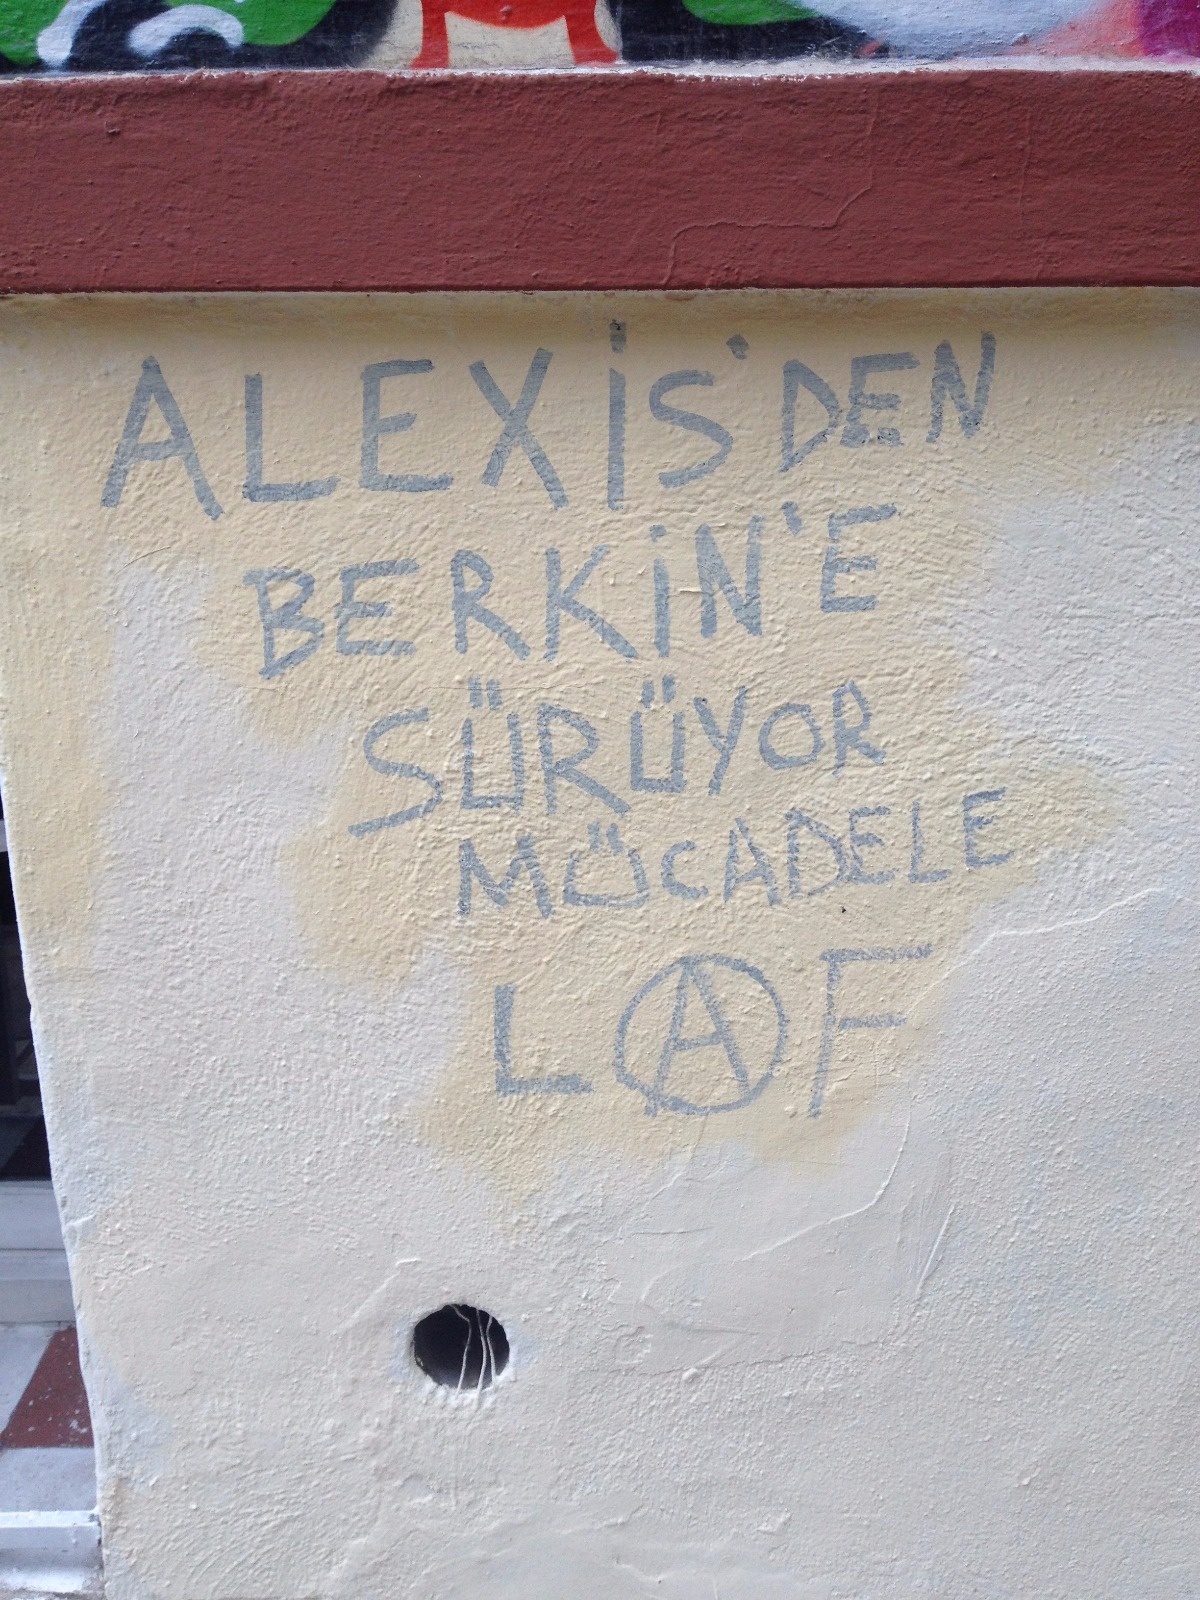 ALEXİS'DEN
BERKİN'E
SÜRÜYOR
MÜCADELE
LAF